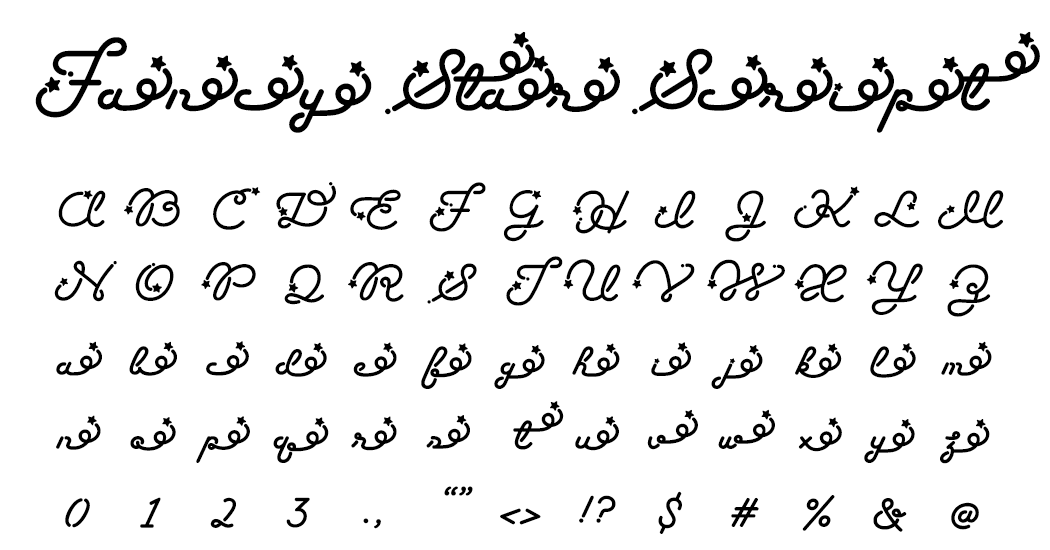 Fancy Star Script
A B C D E F G H I J K L M
N O P Q R S T U V W X Y Z
a b c d e f g h i j k l m
n o p q r s t u v w x y z
0 1 2 3 . , “” <> !? $ # % & @